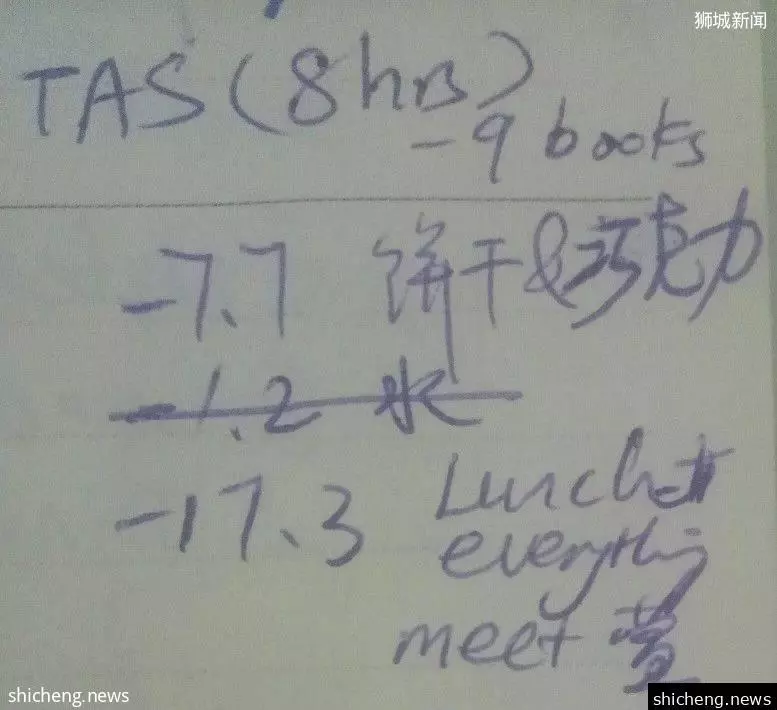 狮城新闻
TAS (8hrs)
-9 books
-7.7 饼干&巧克力
-1.2 水
-17.3 Lunch+
everything
meet 萱
shicheng.news
shicheng.news